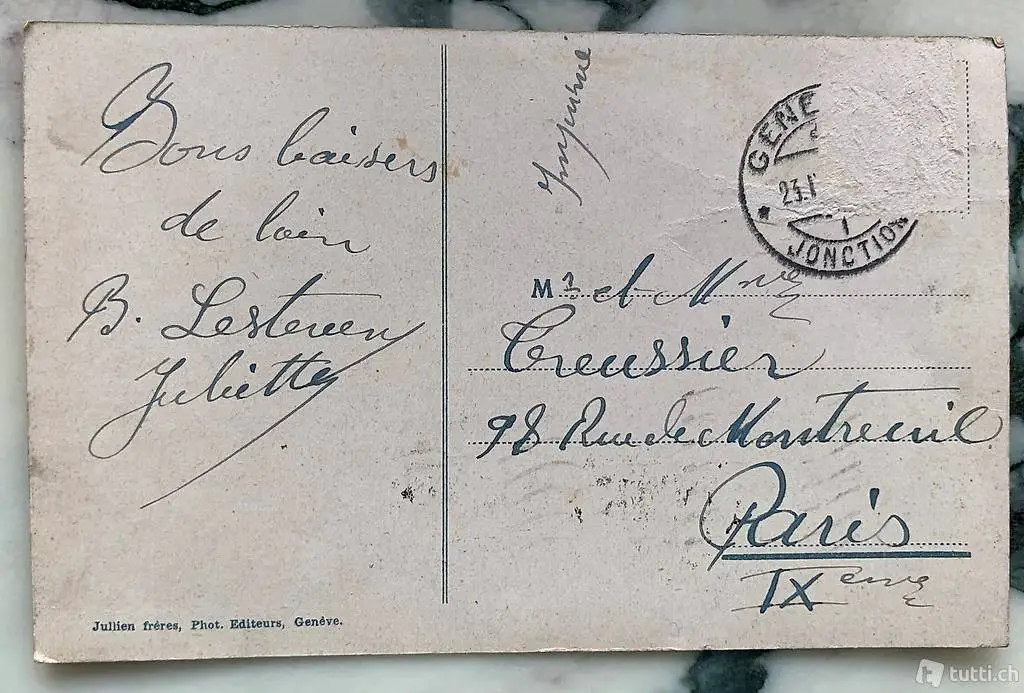 Bons baisers
de loin
B. Lesteven
Juliette
Jullien frères, Phot. Editeurs, Genève.
Imprimé
GENE
23.I
1
JONCTION
Mr et Mme
Creussier
98 Rue de Montreuil
Paris
IXeme
tutti.ch